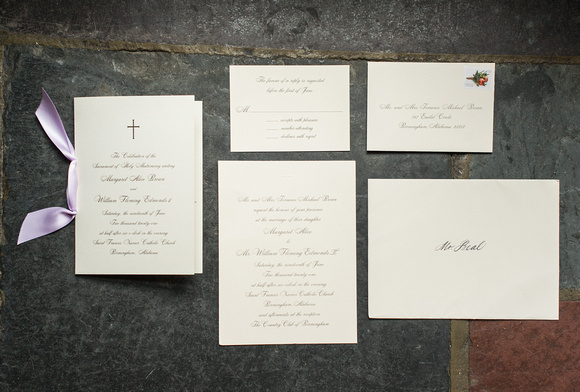 The Celebration of the
Sacrament of Holy Matrimony uniting
Margaret Alice Brown
and
William Fleming Edmonds
Saturday, the nineteenth of June
Two thousand twenty one
at half after six o'clock in the evening
Saint Francis Xavier Catholic Church
Birmingham, Alabama
The favour of a reply is requested
before the first of June
M
accepts with pleasure
number attending
declines with regret
Mr. and Mrs. Terrance Michael Brown
Circle
Birmingham, Alabama
Mr. and Mrs. Terrance Michael Brown
request the honour of your presence
at the marriage of their daughter
Margaret Alice
&
Mr. William Fleming Edmonds II
Saturday, the nineteenth of June
Two thousand twenty one
at half after six o'clock in the evening
Saint Francis Xavier Catholic Church
Birmingham, Alabama
and afterwards at the reception
The Country Club of Birmingham
Mr. Beal